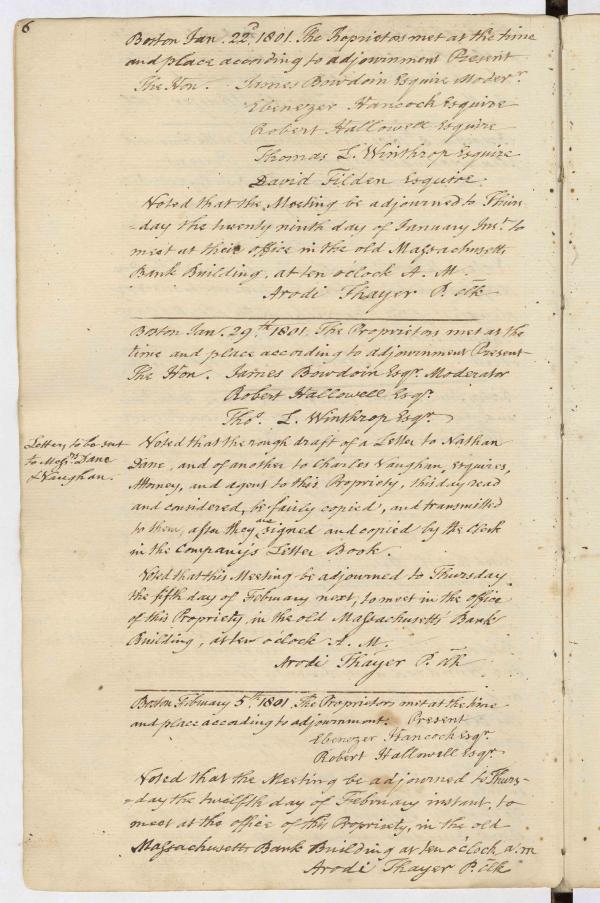 6
Boston Jan. 22d, 1801. The Proprietors met at the time
and place according to adjournment Present
The Hon. James Bowdoin Esquire Moderr.
Ebenezer Hancock Esquire
Robert Hallowell Esquire
Thomas L. Winthrop Esquire
David Tilden Esquire.
Voted that the Meeting be adjourned to Thurs-
-day the twenty ninth day of January Inst. to
meet at their office in the old Massachusetts
Bank Building, at ten o'clock A. M.
Arodi Thayer P. clk
Boston Jan. 29.th 1801. The Proprietors met at the
time and place according to adjournment Present
The Hon. James Bowdoin Esqr. Moderator
Robert Hallowell Esqr.
Thos. L. Winthrop Esqr.
Letters to be sent
to Messrs Dane
& Vaughan.
Voted that the rough draft of a Letter to Nathan
Dane, and of another to Charles Vaughan, Esquires,
Attorney, and agent to this Propriety, this day read
and considered, be fairly copied, and transmitted
to them, after they are signed and copied by the Clerk
in the Company's Letter Book.
Voted that this Meeting be adjourned to Thursday
the fifth day of February next, to meet in the office
of this Propriety, in the old Massachusetts Bank
Building, at ten o'clock A. M.
Arodi Thayer P. clk
Boston February 5.th 1801. The Proprietors met at the time
and place according to adjournment: Present
Ebenezer Hancock Esqr.
Robert Hallowell Esqr.
Voted that the Meeting be adjourned to Thurs-
-day the twelfth day of February instant, to
meet at the office of this Propriety, in the old
Massachusetts Bank Building at ten o'clock a. m
Arodi Thayer P. clk